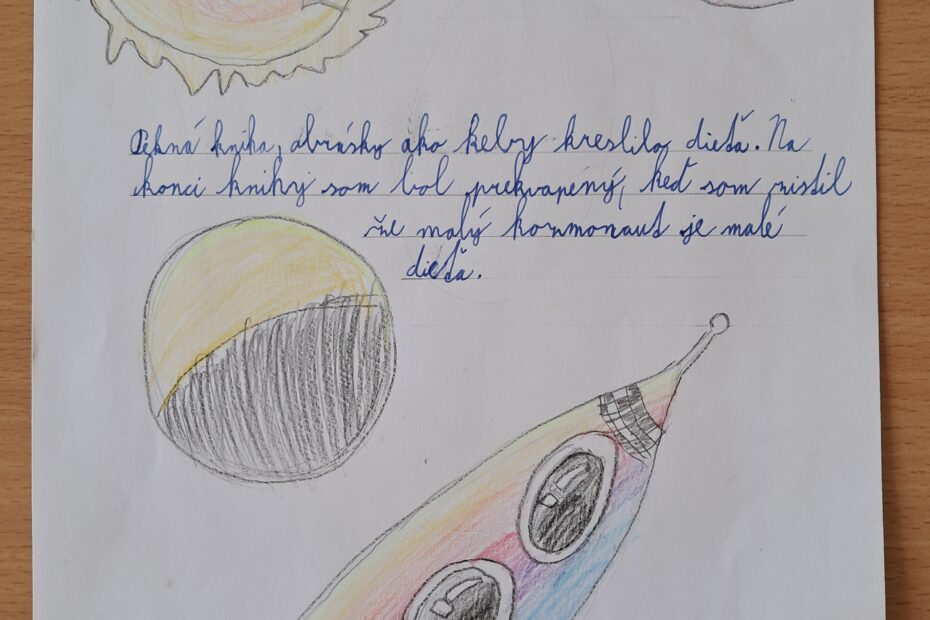 Pekná kniha, obrásky ako keby kreslilo dieťa. Na
konci knihy som bol prekvapený, keď som zistil
že malý kozmonaut je malé
dieťa.